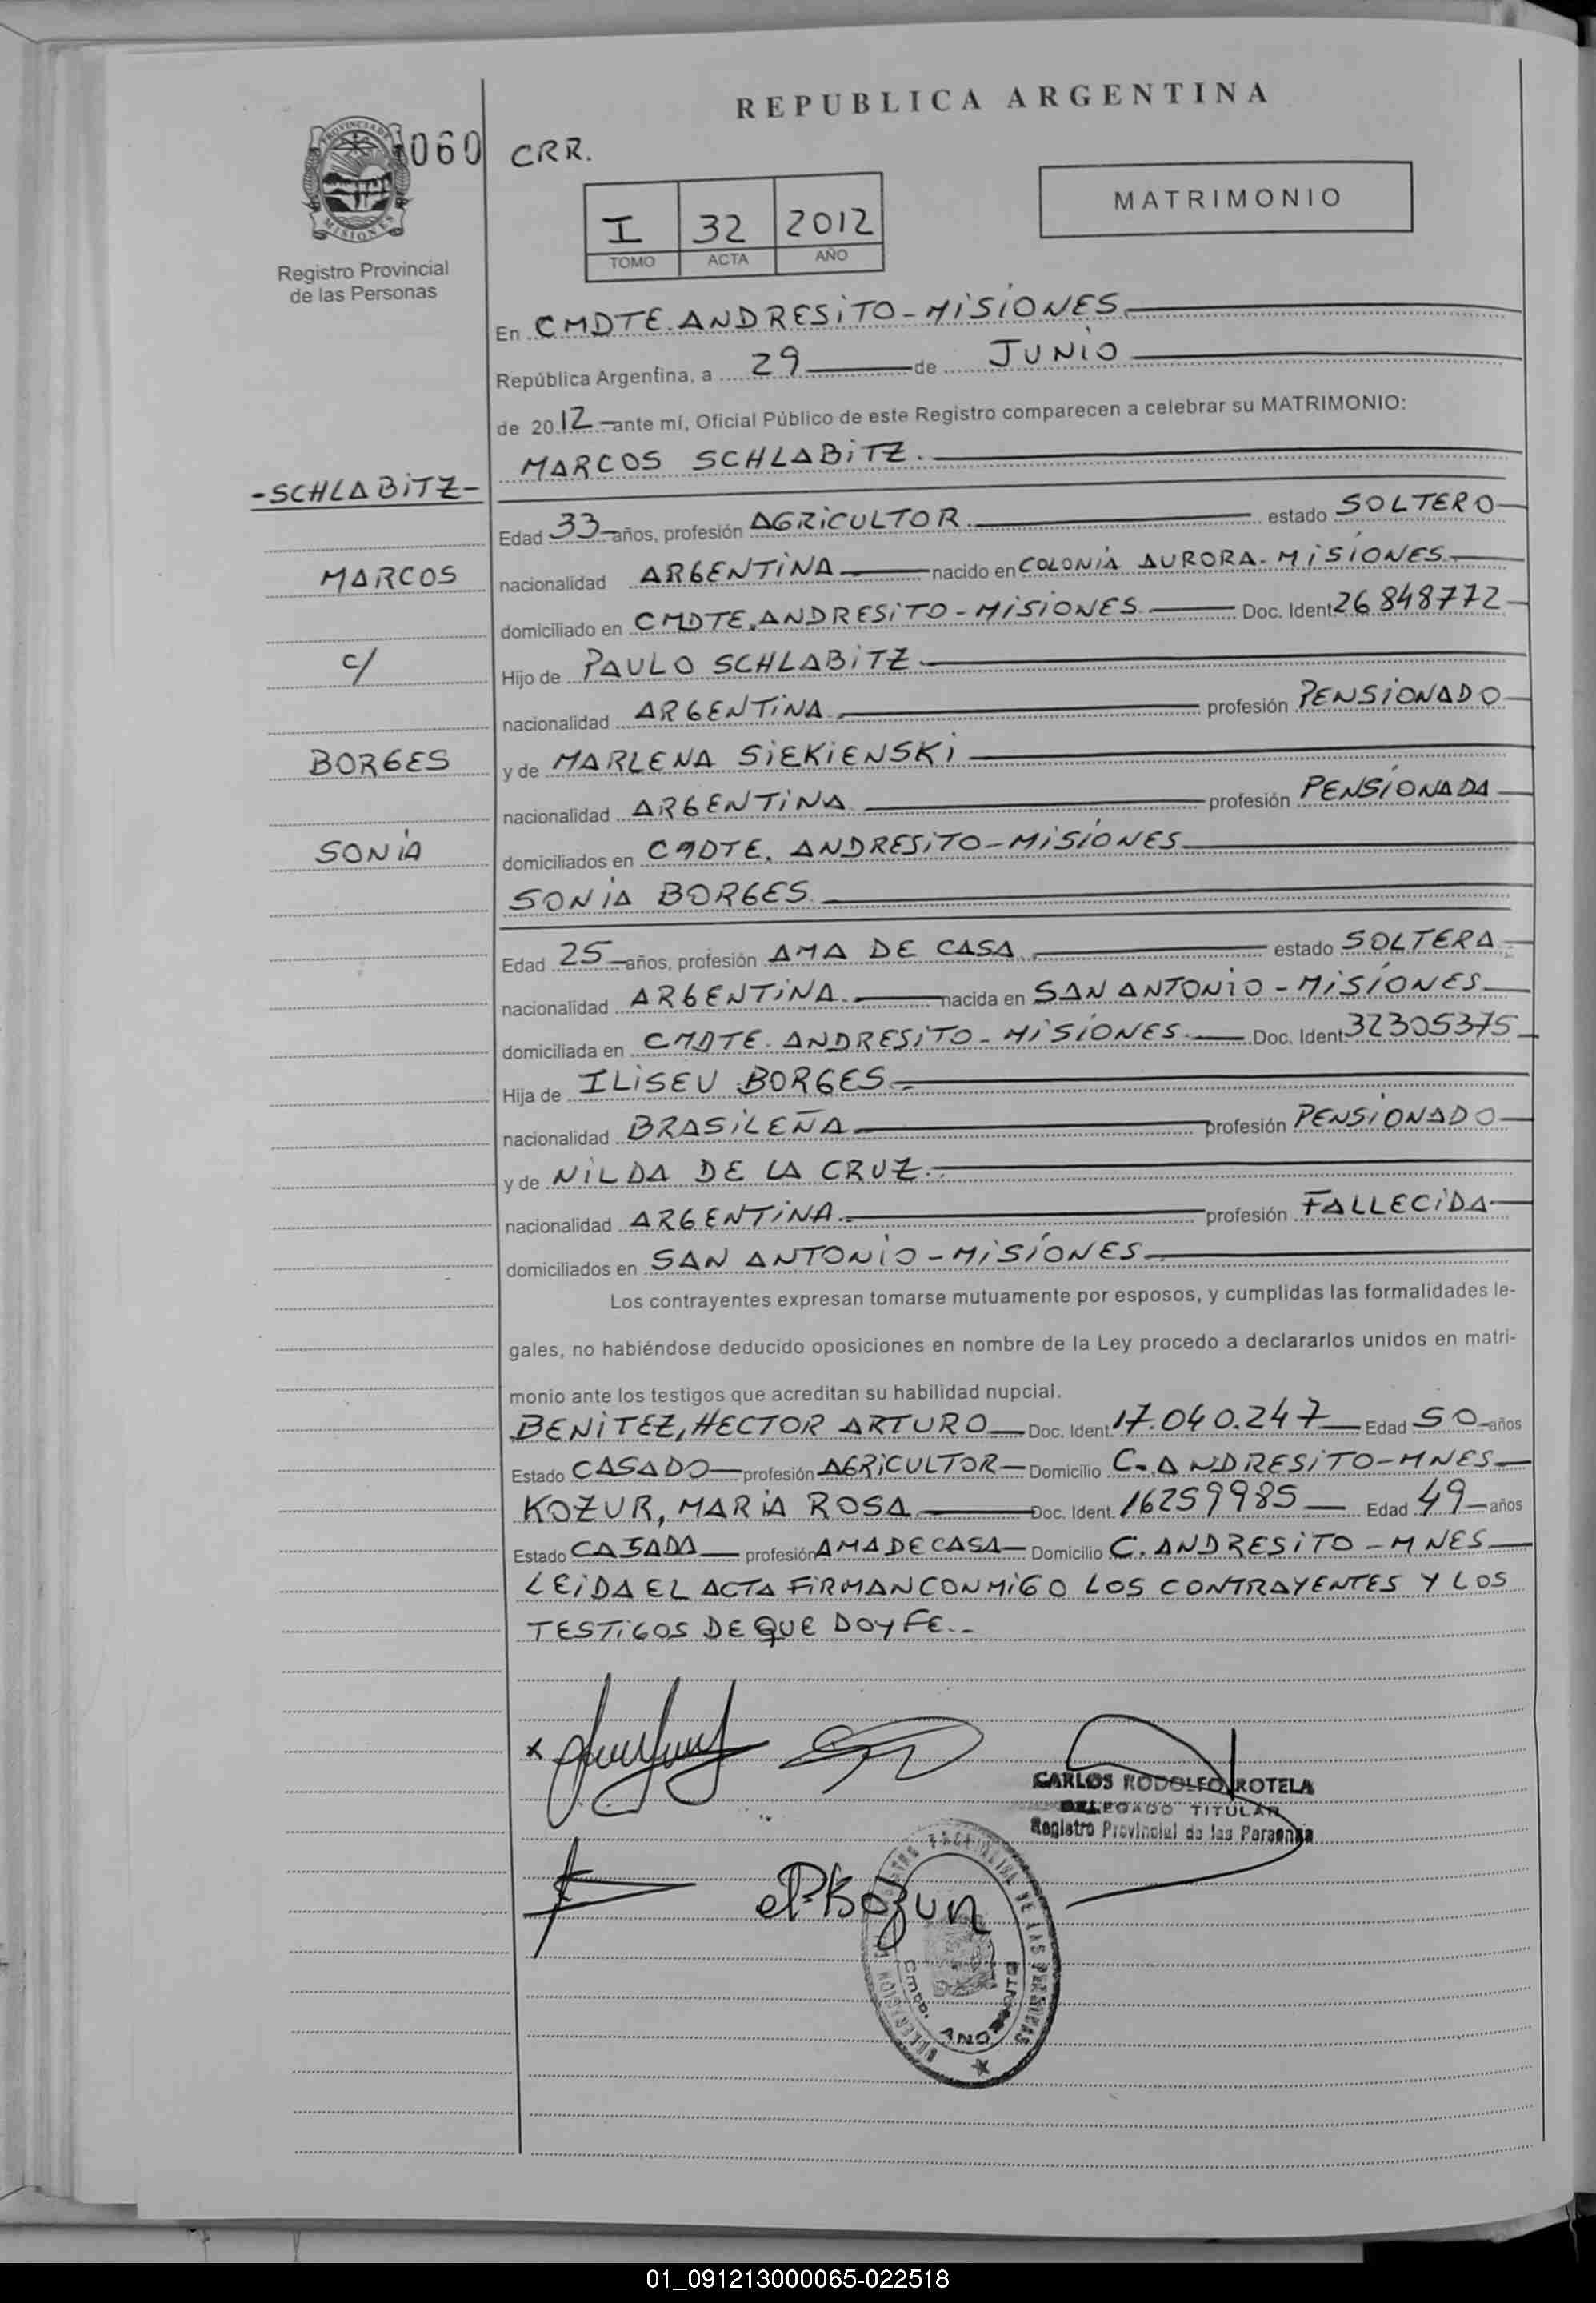 REPUBLICA ARGENTINA
PROVINCIA DE
MISIONES
060
CRR.
Registro Provincial
de las Personas
I 32 2012
TOMO ACTA AÑO
MATRIMONIO
En CMDTE. ANDRESITO - MISIONES
República Argentina, a 29 de JUNIO
de 2012 ante mí, Oficial Público de este Registro comparecen a celebrar su MATRIMONIO:
MARCOS SCHLABITZ.
-SCHLABITZ-
Edad 33 años, profesión AGRICULTOR estado SOLTERO
MARCOS
nacionalidad ARGENTINA nacido en COLONIA AURORA - MISIONES
domiciliado en CMDTE. ANDRESITO - MISIONES Doc. Ident 26848772
c/
Hijo de PAULO SCHLABITZ
nacionalidad ARGENTINA profesión PENSIONADO
BORGES
y de MARLENA SIEKIENSKI
nacionalidad ARGENTINA profesión PENSIONADA
SONIA
domiciliados en CMDTE. ANDRESITO - MISIONES
SONIA BORGES
Edad 25 años, profesión AMA DE CASA estado SOLTERA
nacionalidad ARGENTINA nacida en SAN ANTONIO - MISIONES
domiciliada en CMDTE. ANDRESITO - MISIONES Doc. Ident 32305375
Hija de ILISEU BORGES
nacionalidad BRASILEÑA profesión PENSIONADO
y de NILDA DE LA CRUZ
nacionalidad ARGENTINA profesión FALLECIDA
domiciliados en SAN ANTONIO - MISIONES
Los contrayentes expresan tomarse mutuamente por esposos, y cumplidas las formalidades le-
gales, no habiéndose deducido oposiciones en nombre de la Ley procedo a declararlos unidos en matri-
monio ante los testigos que acreditan su habilidad nupcial.
BENITEZ, HECTOR ARTURO Doc. Ident. 17.040.247 Edad 50 años
Estado CASADO profesión AGRICULTOR Domicilio C. ANDRESITO - MNES
KOZUR, MARIA ROSA Doc. Ident. 16259985 Edad 49 años
Estado CASADA profesión AMA DE CASA Domicilio C. ANDRESITO - MNES
LEIDA EL ACTA FIRMAN CONMIGO LOS CONTRAYENTES Y LOS
TESTIGOS DE QUE DOY FE.-
CARLOS RODOLFO ROTELA
DELEGADO TITULAR
Registro Provincial de las Personas
Kozur
REGISTRO PROVINCIAL DE LAS PERSONAS
Cmte. ANDRESITO
01_091213000065-022518